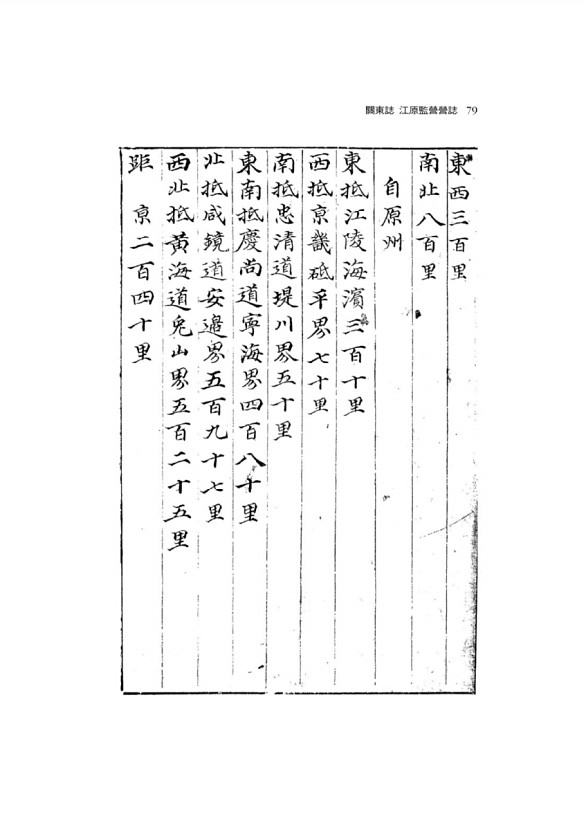 關東誌 江原監營營誌 79
東西三百里
南北八百里
自原州
東抵江陵海濱三百十里
西抵京畿砥平界七十里
南抵忠清道堤川界五十里
東南抵慶尚道寧海界四百八十里
北抵咸鏡道安邊界五百九十七里
西北抵黃海道兎山界五百二十五里
距 京二百四十里